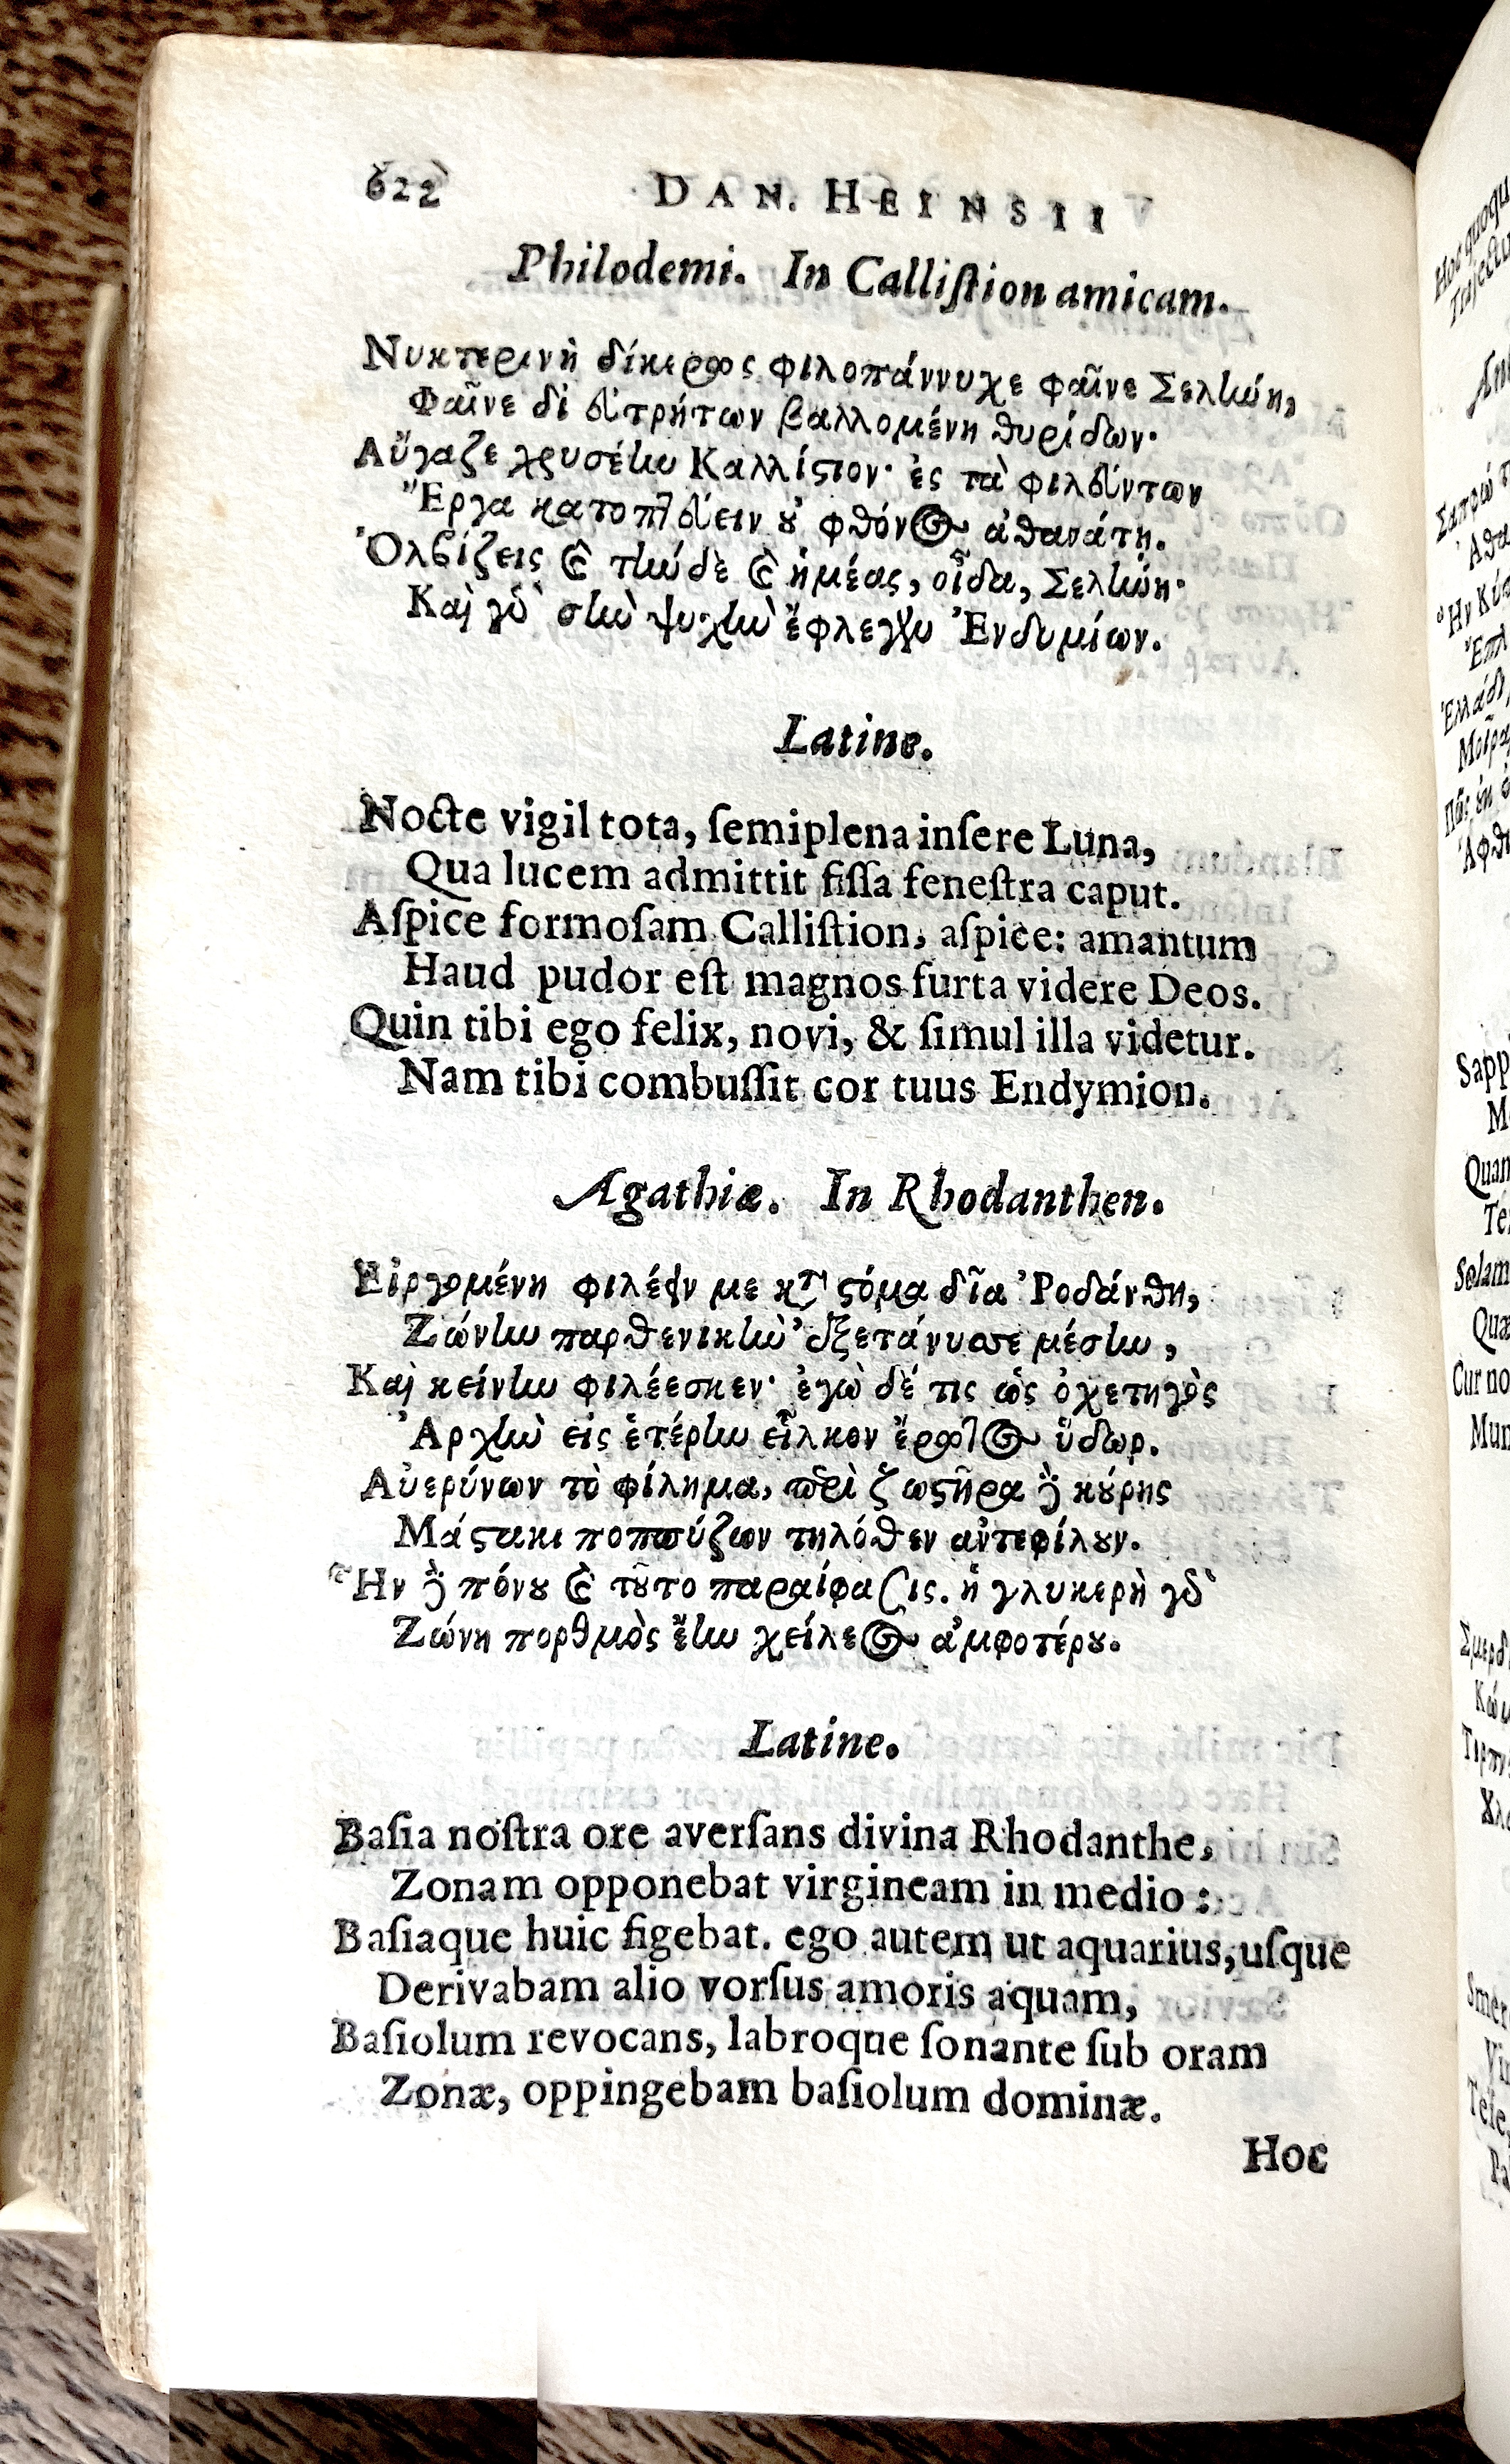 622 DAN. HEINSII
Philodemi. In Calliſtion amicam.
Νυκτερινὴ δίκερως φιλοπάννυχε φαῖνε Σελήνη,
Φαῖνε δι' εὐτρήτων βαλλομένη θυρίδων·
Αὔγαζε χρυσέην Καλλίστιον· ἐς τὰ φιλεύντων
Ἔργα κατοπτεύειν οὐ φθόνος ἀθανάτη.
Ὀλβίζεις καὶ τήνδε καὶ ἡμέας, οἶδα, Σελήνη·
Καὶ γὰρ σὴν ψυχὴν ἔφλεγεν Ἐνδυμίων.
Latine.
Nocte vigil tota, ſemiplena inſere Luna,
Qua lucem admittit fiſſa feneſtra caput.
Aſpice formoſam Calliſtion, aſpice: amantum
Haud pudor eſt magnos furta videre Deos.
Quin tibi ego felix, novi, & ſimul illa videtur.
Nam tibi combuſſit cor tuus Endymion.
Agathiæ. In Rhodanthen.
Εἰργομένη φιλέειν με κατὰ στόμα δῖα Ῥοδάνθη,
Ζώνην παρθενικὴν ἐξετάνυσσε μέσην,
Καὶ κείνην φιλέεσκεν· ἐγὼ δέ τις ὡς ὀχετηγὸς
Ἀρχὴν εἰς ἑτέρην εἷλκον ἔρωτος ὕδωρ.
Αὐερύνων τὸ φίλημα, περὶ ζωστῆρα δὲ κούρης
Μάστακι ποππύζων τηλόθεν ἀντεφίλουν.
Ἦν δὲ πόνου καὶ τοῦτο παραίφασις. ἡ γλυκερὴ γὰρ
Ζώνη πορθμὸς ἔην χείλεος ἀμφοτέρου.
Latine.
Baſia noſtra ore averſans divina Rhodanthe,
Zonam opponebat virgineam in medio:
Baſiaque huic figebat. ego autem ut aquarius, uſque
Derivabam alio vorſus amoris aquam,
Baſiolum revocans, labroque ſonante ſub oram
Zonæ, oppingebam baſiolum dominæ.
Hoc